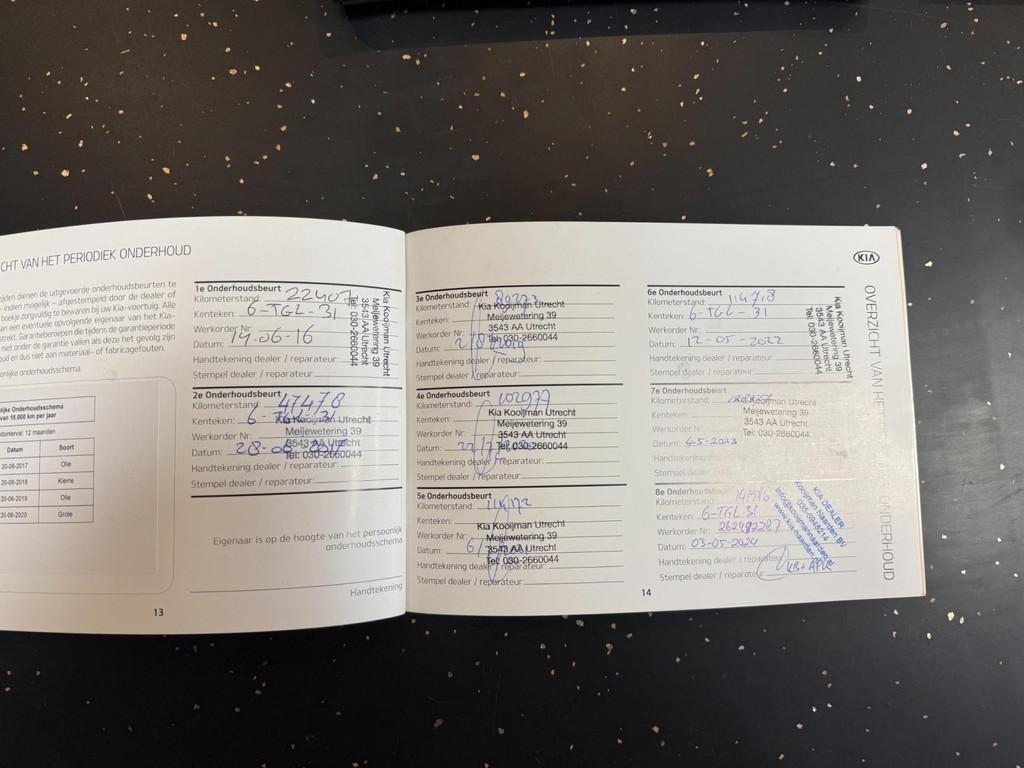 CHT VAN HET PERIODIEK ONDERHOUD
ijden dienen de uitgevoerde onderhoudsbeurten te
- indien mogelijk – afgestempeld door de dealer of
boekje zorgvuldig te bewaren bij uw Kia-voertuig. Alle
an een eventuele opvolgende eigenaar van het Kia-
strekt. Garantieberoepen die tijdens de garantieperiode
niet onder de garantie vallen als deze het gevolg zijn
oud en dus niet aan materiaal- of fabricagefouten.
onlijke onderhoudsschema.
lijke Onderhoudsschema
van 15.000 km per jaar
dsinterval: 12 maanden
Datum Soort
20-06-2017 Olie
20-06-2018 Kleine
20-06-2019 Olie
20-06-2020 Grote
1e Onderhoudsbeurt
Kilometerstand: 22407
Kenteken: 6-TGL-31
Werkorder Nr:
Datum: 14-06-16
Handtekening dealer / reparateur:
Stempel dealer / reparateur:
Kia Kooijman Utrecht
Meijewetering 39
3543 AA Utrecht
Tel: 030-2660044
2e Onderhoudsbeurt
Kilometerstand: 47478
Kenteken: 6-TGL-31
Werkorder Nr:
Datum: 28-06
Handtekening dealer / reparateur:
Stempel dealer / reparateur:
Kia Kooijman Utrecht
Meijewetering 39
3543 AA Utrecht
Tel: 030-2660044
Eigenaar is op de hoogte van het persoonlijk
onderhoudsschema
Handtekening
13
3e Onderhoudsbeurt
Kilometerstand:
Kenteken:
Werkorder Nr:
Datum:
Handtekening dealer / reparateur:
Stempel dealer / reparateur:
Kia Kooijman Utrecht
Meijewetering 39
3543 AA Utrecht
Tel: 030-2660044
4e Onderhoudsbeurt
Kilometerstand: 102977
Kenteken:
Werkorder Nr:
Datum:
Handtekening dealer / reparateur:
Stempel dealer / reparateur:
Kia Kooijman Utrecht
Meijewetering 39
3543 AA Utrecht
Tel: 030-2660044
5e Onderhoudsbeurt
Kilometerstand:
Kenteken:
Werkorder Nr:
Datum:
Handtekening dealer / reparateur:
Stempel dealer / reparateur:
Kia Kooijman Utrecht
Meijewetering 39
3543 AA Utrecht
Tel: 030-2660044
KIA
OVERZICHT VAN HE
ONDERHOUD
6e Onderhoudsbeurt
Kilometerstand:
Kenteken: 6-TGL-31
Werkorder Nr:
Datum: 12-05-2022
Handtekening dealer / reparateur:
Stempel dealer / reparateur:
Kia Kooijman Utrecht
Meijewetering 39
3543 AA Utrecht
Tel: 030-2660044
7e Onderhoudsbeurt
Kilometerstand:
Kenteken:
Werkorder Nr:
Datum: 4-5-2023
Handtekening dealer / reparateur:
Stempel dealer / reparateur:
Kia Kooijman Utrecht
Meijewetering 39
3543 AA Utrecht
Tel: 030-2660044
8e Onderhoudsbeurt
Kilometerstand: 141586
Kenteken: 6-TGL 31
Werkorder Nr: 262492287
Datum: 03-05-2024
Handtekening dealer / reparateur:
Stempel dealer / reparateur: KB+APK
KIA DEALER
Kooijman Naarden BV
www.kia-naarden
14